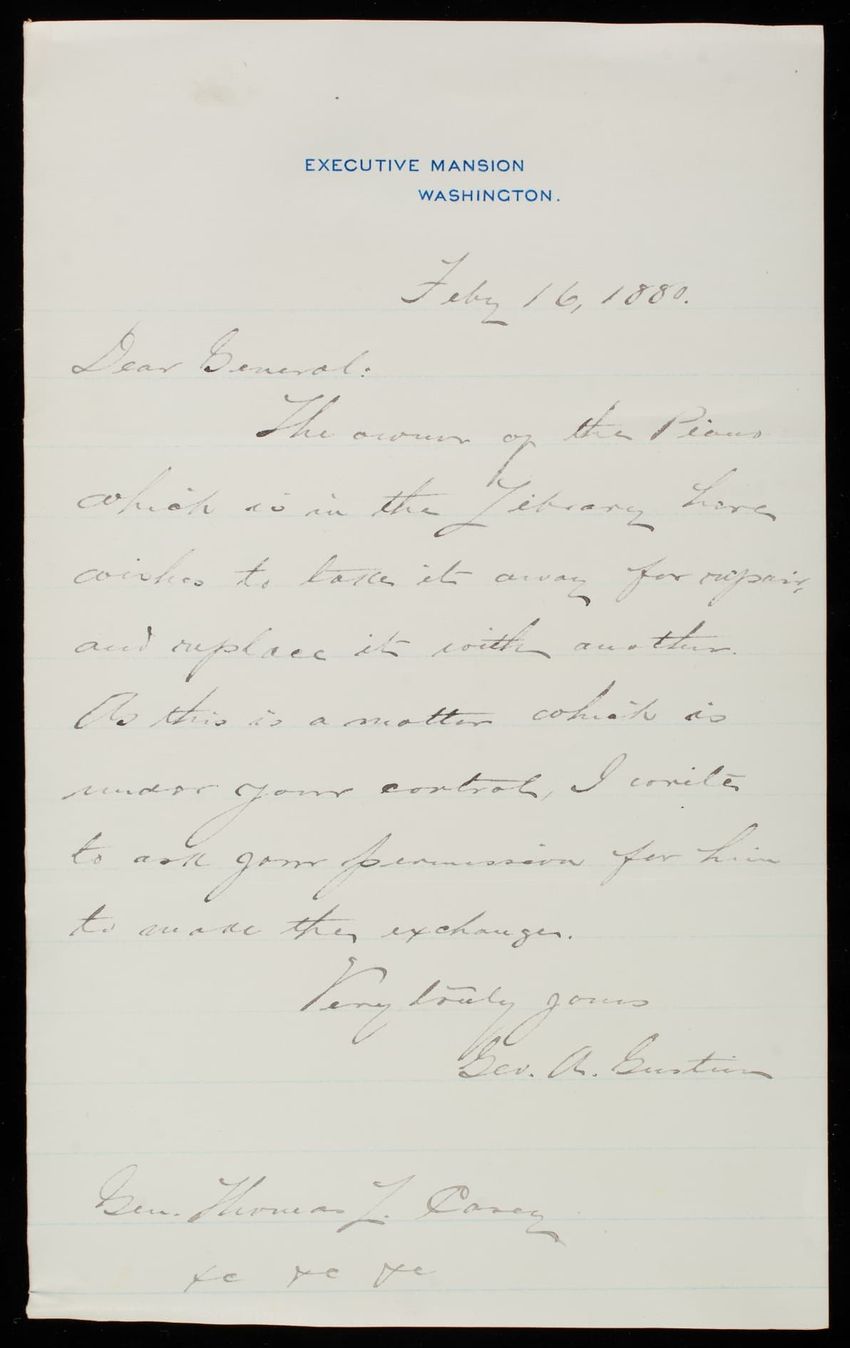 EXECUTIVE MANSION
WASHINGTON.
Feby 16, 1880.
Dear General:
The owner of the Piano
which is in the Library here
wishes to take it away for repair,
and replace it with another.
As this is a matter which is
under your control, I write
to ask your permission for him
to make the exchange.
Very truly yours
Geo. A. Gustin
Gen. Thomas L. Casey
&c &c &c